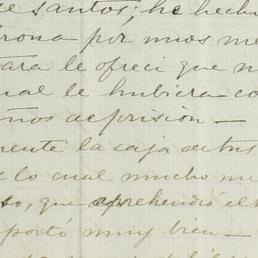 de santos; he hecho
rona por unos me
para le ofreci que n
ual le hubiera co
ños de prision —
mente la caja
e lo cual mucho me
so, que aprehendió el
portó muy bien —